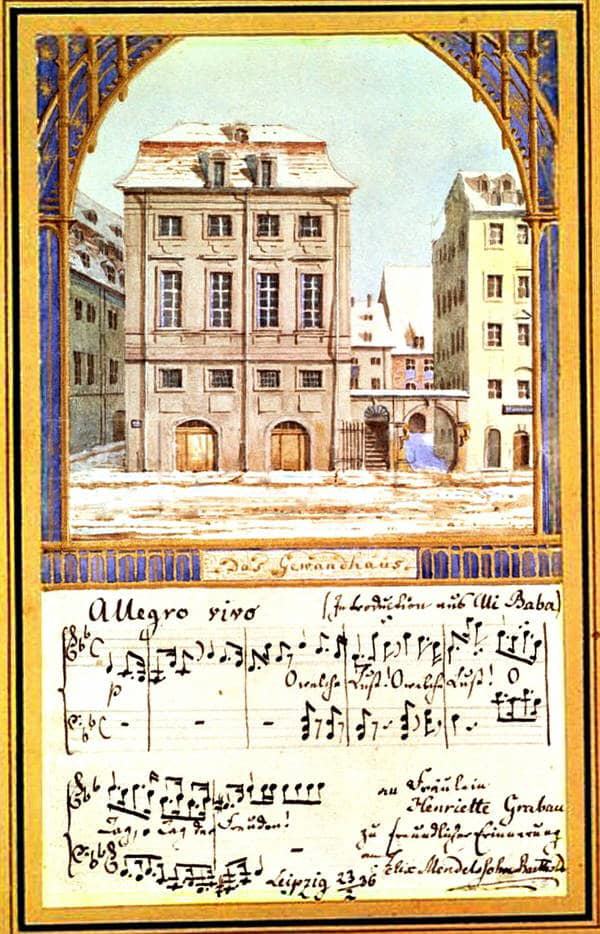 Das Gewandhaus.
Allegro vivo (Introduction aus Ali Baba)
p
O welche Lust! O welche Lust! O
Tag, o Tag der Freuden!
an Fräulein
Henriette Grabau
zu freundlicher Erinnerung
Felix Mendelssohn Bartholdy
Leipzig 23/2 36